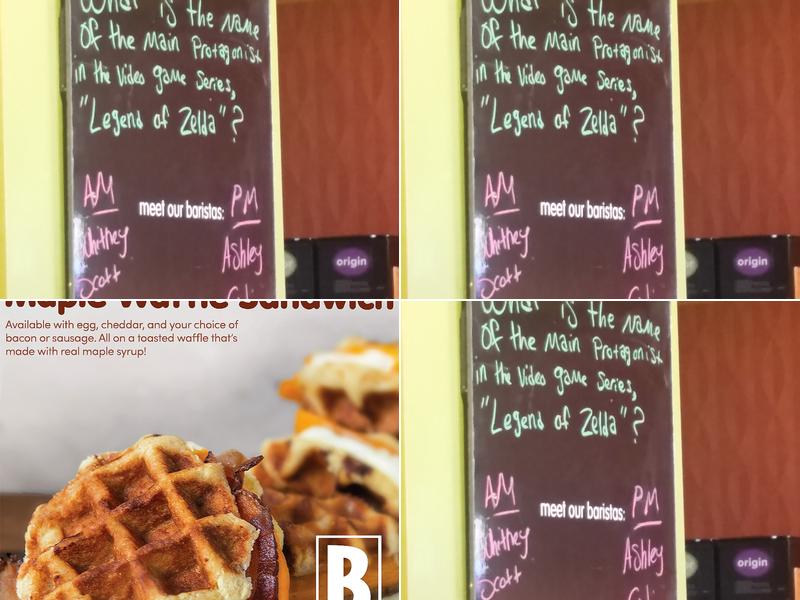 What is the name
Of the Main Protagonist
in the Video game Series,
"Legend of Zelda"?
AM
meet our baristas:
PM
Whitney
Ashley
Scott
origin
What is the name
Of the Main Protagonist
in the Video game Series,
"Legend of Zelda"?
AM
meet our baristas:
PM
Whitney
Ashley
Scott
origin
Maple Waffle Sandwich
Available with egg, cheddar, and your choice of
bacon or sausage. All on a toasted waffle that's
made with real maple syrup!
B
What is the name
Of the Main Protagonist
in the Video game Series,
"Legend of Zelda"?
AM
meet our baristas:
PM
Whitney
Ashley
Scott
origin